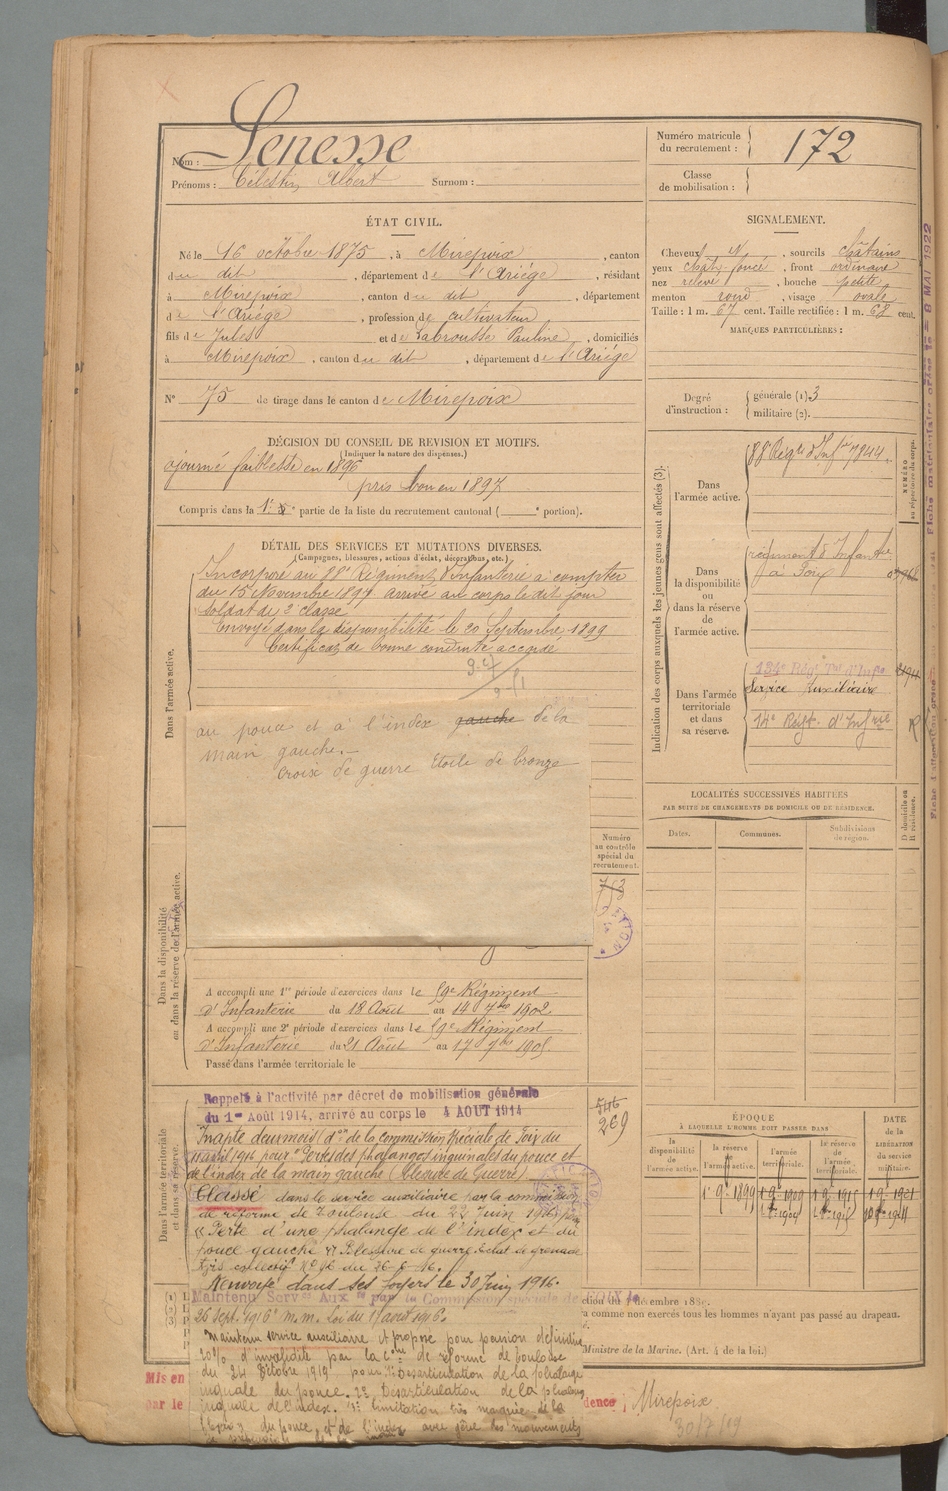 Nom : Senesse
Prénoms : Célestin Albert Surnom :
Numéro matricule du recrutement : 172
Classe de mobilisation :
ÉTAT CIVIL.
Né le 16 octobre 1875, à Mirepoix, canton
du dit, département de l'Ariège, résidant
à Mirepoix, canton du dit, département
de l'Ariège, profession de cultivateur
fils de Jules et de Labrousse Pauline, domiciliés
à Mirepoix, canton du dit, département de l'Ariège
N° 75 de tirage dans le canton de Mirepoix
SIGNALEMENT.
Cheveux N, sourcils châtains
yeux chatn foncé, front ordinaire
nez relevé, bouche petite
menton rond, visage ovale
Taille : 1 m. 67 cent. Taille rectifiée : 1 m. 68 cent.
MARQUES PARTICULIÈRES :
Degré d'instruction : générale (1) 3
militaire (2).
DÉCISION DU CONSEIL DE REVISION ET MOTIFS.
(Indiquer la nature des dispenses.)
ajourné faiblesse en 1896
pris bon en 1897
Compris dans la 1re partie de la liste du recrutement cantonal ( e portion).
DÉTAIL DES SERVICES ET MUTATIONS DIVERSES.
(Campagnes, blessures, actions d'éclat, décorations, etc.)
Dans l'armée active.
Incorporé au 88e Régiment d'Infanterie à compter
du 15 Novembre 1897 arrivé au corps le dit jour
soldat de 2e classe
Envoyé dans la disponibilité le 20 Septembre 1899
Certificat de bonne conduite accordé
au pouce et à l'index gauche de la
main gauche.-
Croix de guerre Etoile de bronze
Dans la disponibilité ou dans la réserve de l'armée active.
A accompli une 1re période d'exercices dans le 59e Régiment
d'Infanterie du 18 Août au 14 7bre 1902
A accompli une 2e période d'exercices dans le 59e Régiment
d'Infanterie du 21 Août au 17 7bre 1905
Passé dans l'armée territoriale le
Dans l'armée territoriale et dans sa réserve.
Rappelé à l'activité par décret de mobilisation générale
du 1er Août 1914, arrivé au corps le 4 AOUT 1914
Inapte deux mois (don de la commission spéciale de Foix du
avril 1916 pour "Pertes des phalanges inguinales du pouce et
de l'index de la main gauche (blessure de Guerre).
Classé dans le service auxiliaire par la commission
de réforme de Toulouse du 22 Juin 1916 pour
"Perte d'une phalange de l'index et du
pouce gauche" Blessure de guerre éclat de grenade
Avis collectif N° 96 du 26-6-16.
Renvoyé dans ses foyers le 30 Juin 1916.
Maintenu Servce Auxre par la Commission spéciale de FOIX le
26 Sept. 1916 m.m. Loi du avril 1916.
Maintenu service auxiliaire et proposé pour pension définitive
20% d'invalidité par la Con de réforme de Toulouse
du 24 Octobre 1919 pour 1° Desarticulation de la phalange
inguale du pouce. 2° Desarticulation de la phalange
inguale de l'index. 3° limitation très marquée de la
flexion du pouce et de l'index avec gêne des mouvements
Numéro au contrôle spécial du recrutement.
713
546
269
Indication des corps auxquels les jeunes gens sont affectés (3).
NUMÉRO au répertoire du corps.
Dans l'armée active.
88 Régt d'Infie 7844
Dans la disponibilité ou dans la réserve de l'armée active.
régiment d'Infantrie
à Foix
Dans l'armée territoriale et dans sa réserve.
134e Régt Tal d'Infie
Service Auxiliaire
14e Régt. d'Infrie
R
LOCALITÉS SUCCESSIVES HABITÉES
PAR SUITE DE CHANGEMENTS DE DOMICILE OU DE RÉSIDENCE.
Dates. Communes. Subdivisions de région.
D domicile ou R résidence.
ÉPOQUE
À LAQUELLE L'HOMME DOIT PASSER DANS
la disponibilité de l'armée active. la réserve de l'armée active. l'armée territoriale. la réserve de l'armée territoriale.
DATE de la LIBÉRATION du service militaire.
1er 9bre 1899 1 9 1909 1 9 1915 1 9 1921
ction du 4 décembre 1889.
a comme non exercés tous les hommes n'ayant pas passé au drapeau.
Ministre de la Marine. (Art. 4 de la loi.)
Mis en
par le
dence
Mirepoix
30/7/19
8 MAI 1922